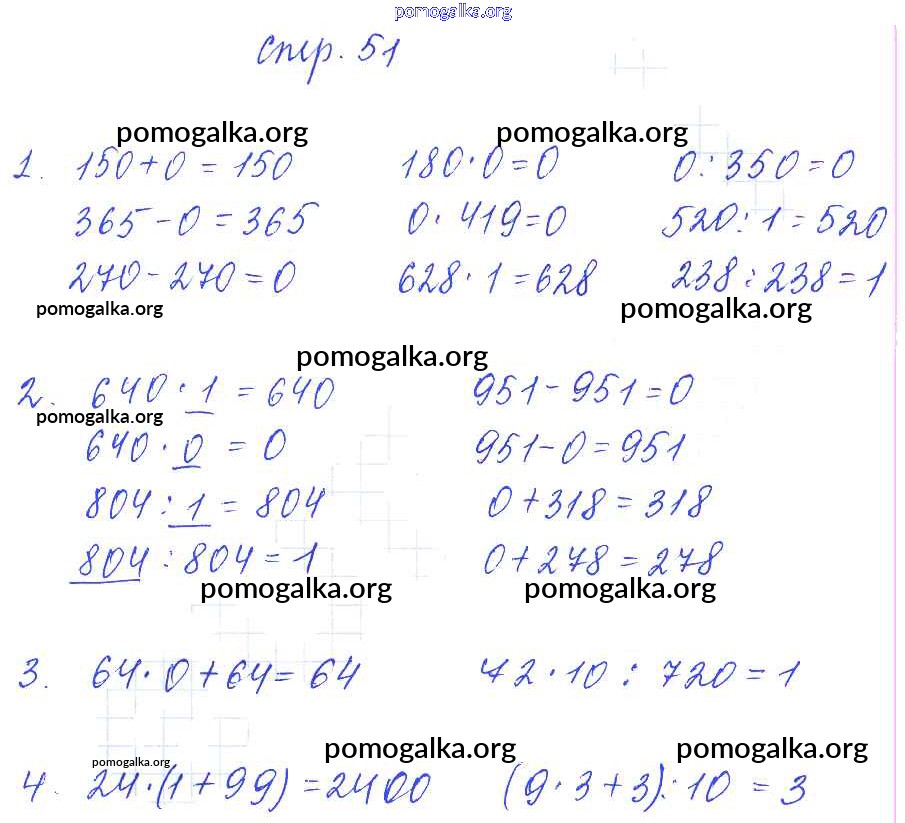 pomogalka.org
стр. 51
pomogalka.org pomogalka.org
1. 150+0 = 150 180·0=0 0:350=0
365-0=365 0·419=0 520:1=520
270-270=0 628·1=628 238:238=1
pomogalka.org pomogalka.org
pomogalka.org
2. 640·1=640 951-951=0
pomogalka.org
640·0=0 951-0=951
804:1=804 0+318=318
804:804=1 0+278=278
pomogalka.org pomogalka.org
3. 64·0+64=64 72·10:720=1
pomogalka.org pomogalka.org pomogalka.org
4. 24·(1+99)=2400 (9·3+3):10=3